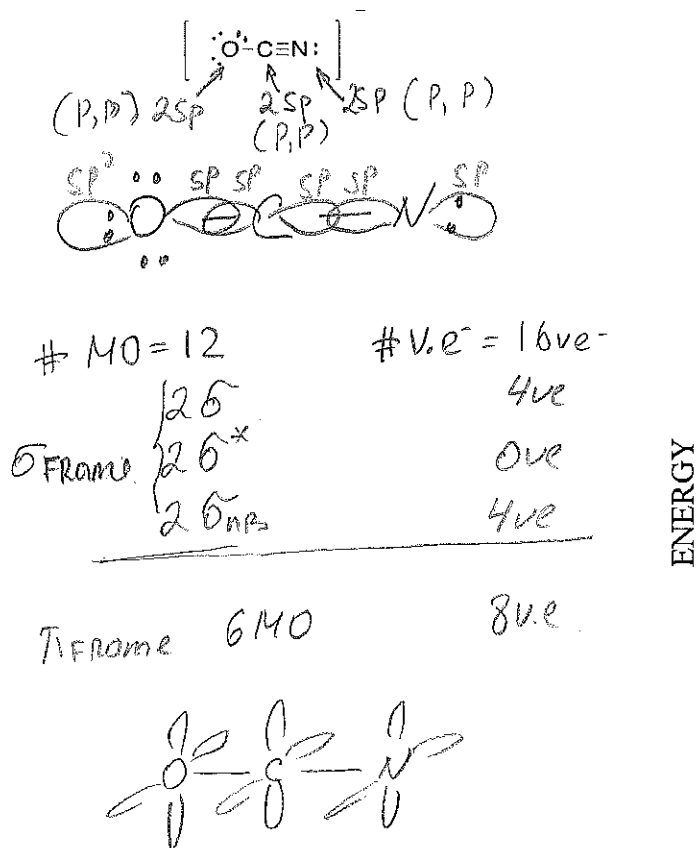 [ :Ö-C≡N: ]⁻
(P,P) 2SP 2SP 2SP (P,P)
(P,P)
SP SP SP SP SP SP
O C N
# MO = 12 # V.e⁻ = 16ve⁻
2σ 4ve
σ FRAME 2σ* 0ve
2σ NB 4ve
π FRAME 6MO 8v.e
O — C — N
ENERGY